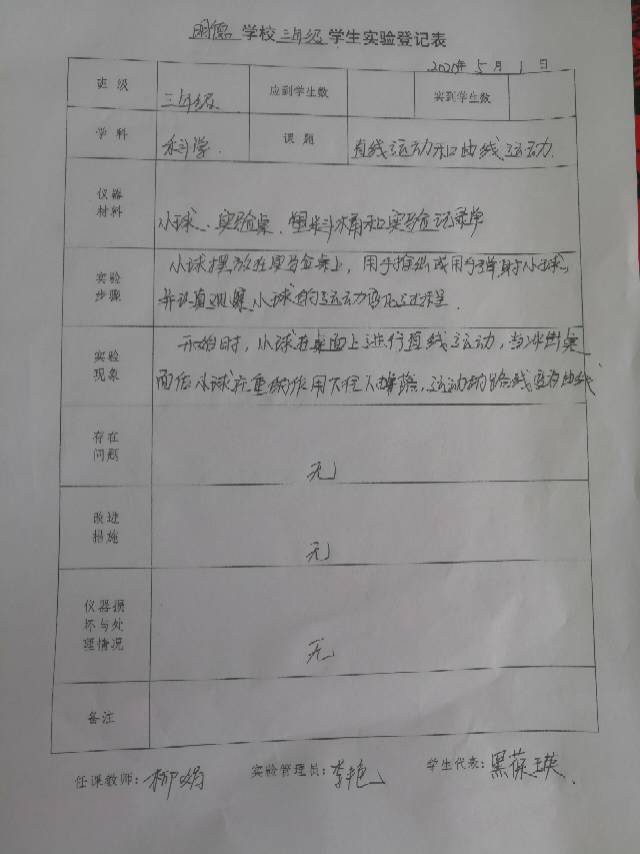 明德 学校 三年级 学生实验登记表
2020年 5 月 1 日
班 级 三年级 应到学生数 实到学生数
学 科 科学 课 题 直线运动和曲线运动
仪器
材料
小球、实验桌、塑料斗槽和实验记录单
实验
步骤
小球摆放在实验桌上,用手推纵或用手弹射小球,
并认真观察小球的运动变化过程
实验
现象
开始时,小球在桌面上进行直线运动,当冲出桌
面后小球在重力作用下往下掉落,运动的路线变为曲线
存在
问题
无
改进
措施
无
仪器损
坏与处
理情况
无
备注
任课教师: 柳娟 实验管理员: 李艳 学生代表: 黑葆英